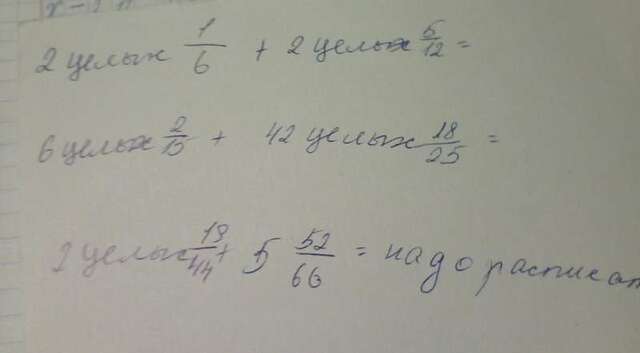 2 целых 1/6 + 2 целых 5/12 =
6 целых 2/15 + 42 целых 18/25 =
2 целых 19/44 + 5 52/66 = надо расписат